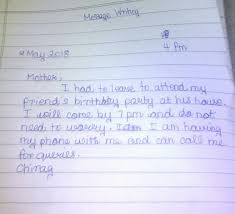 Message Writing
4 pm
2 May 2018
Mother,
I had to leave to attend my
friend's birthday party at his house.
I will come by 7 pm and do not
need to worry. I am having
my phone with me and can call me
for queries.
Chirag